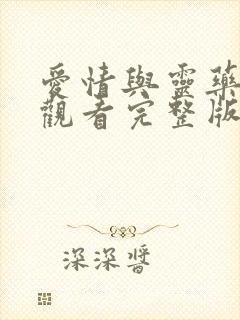 愛情與靈藥
觀看完整版
深深醬